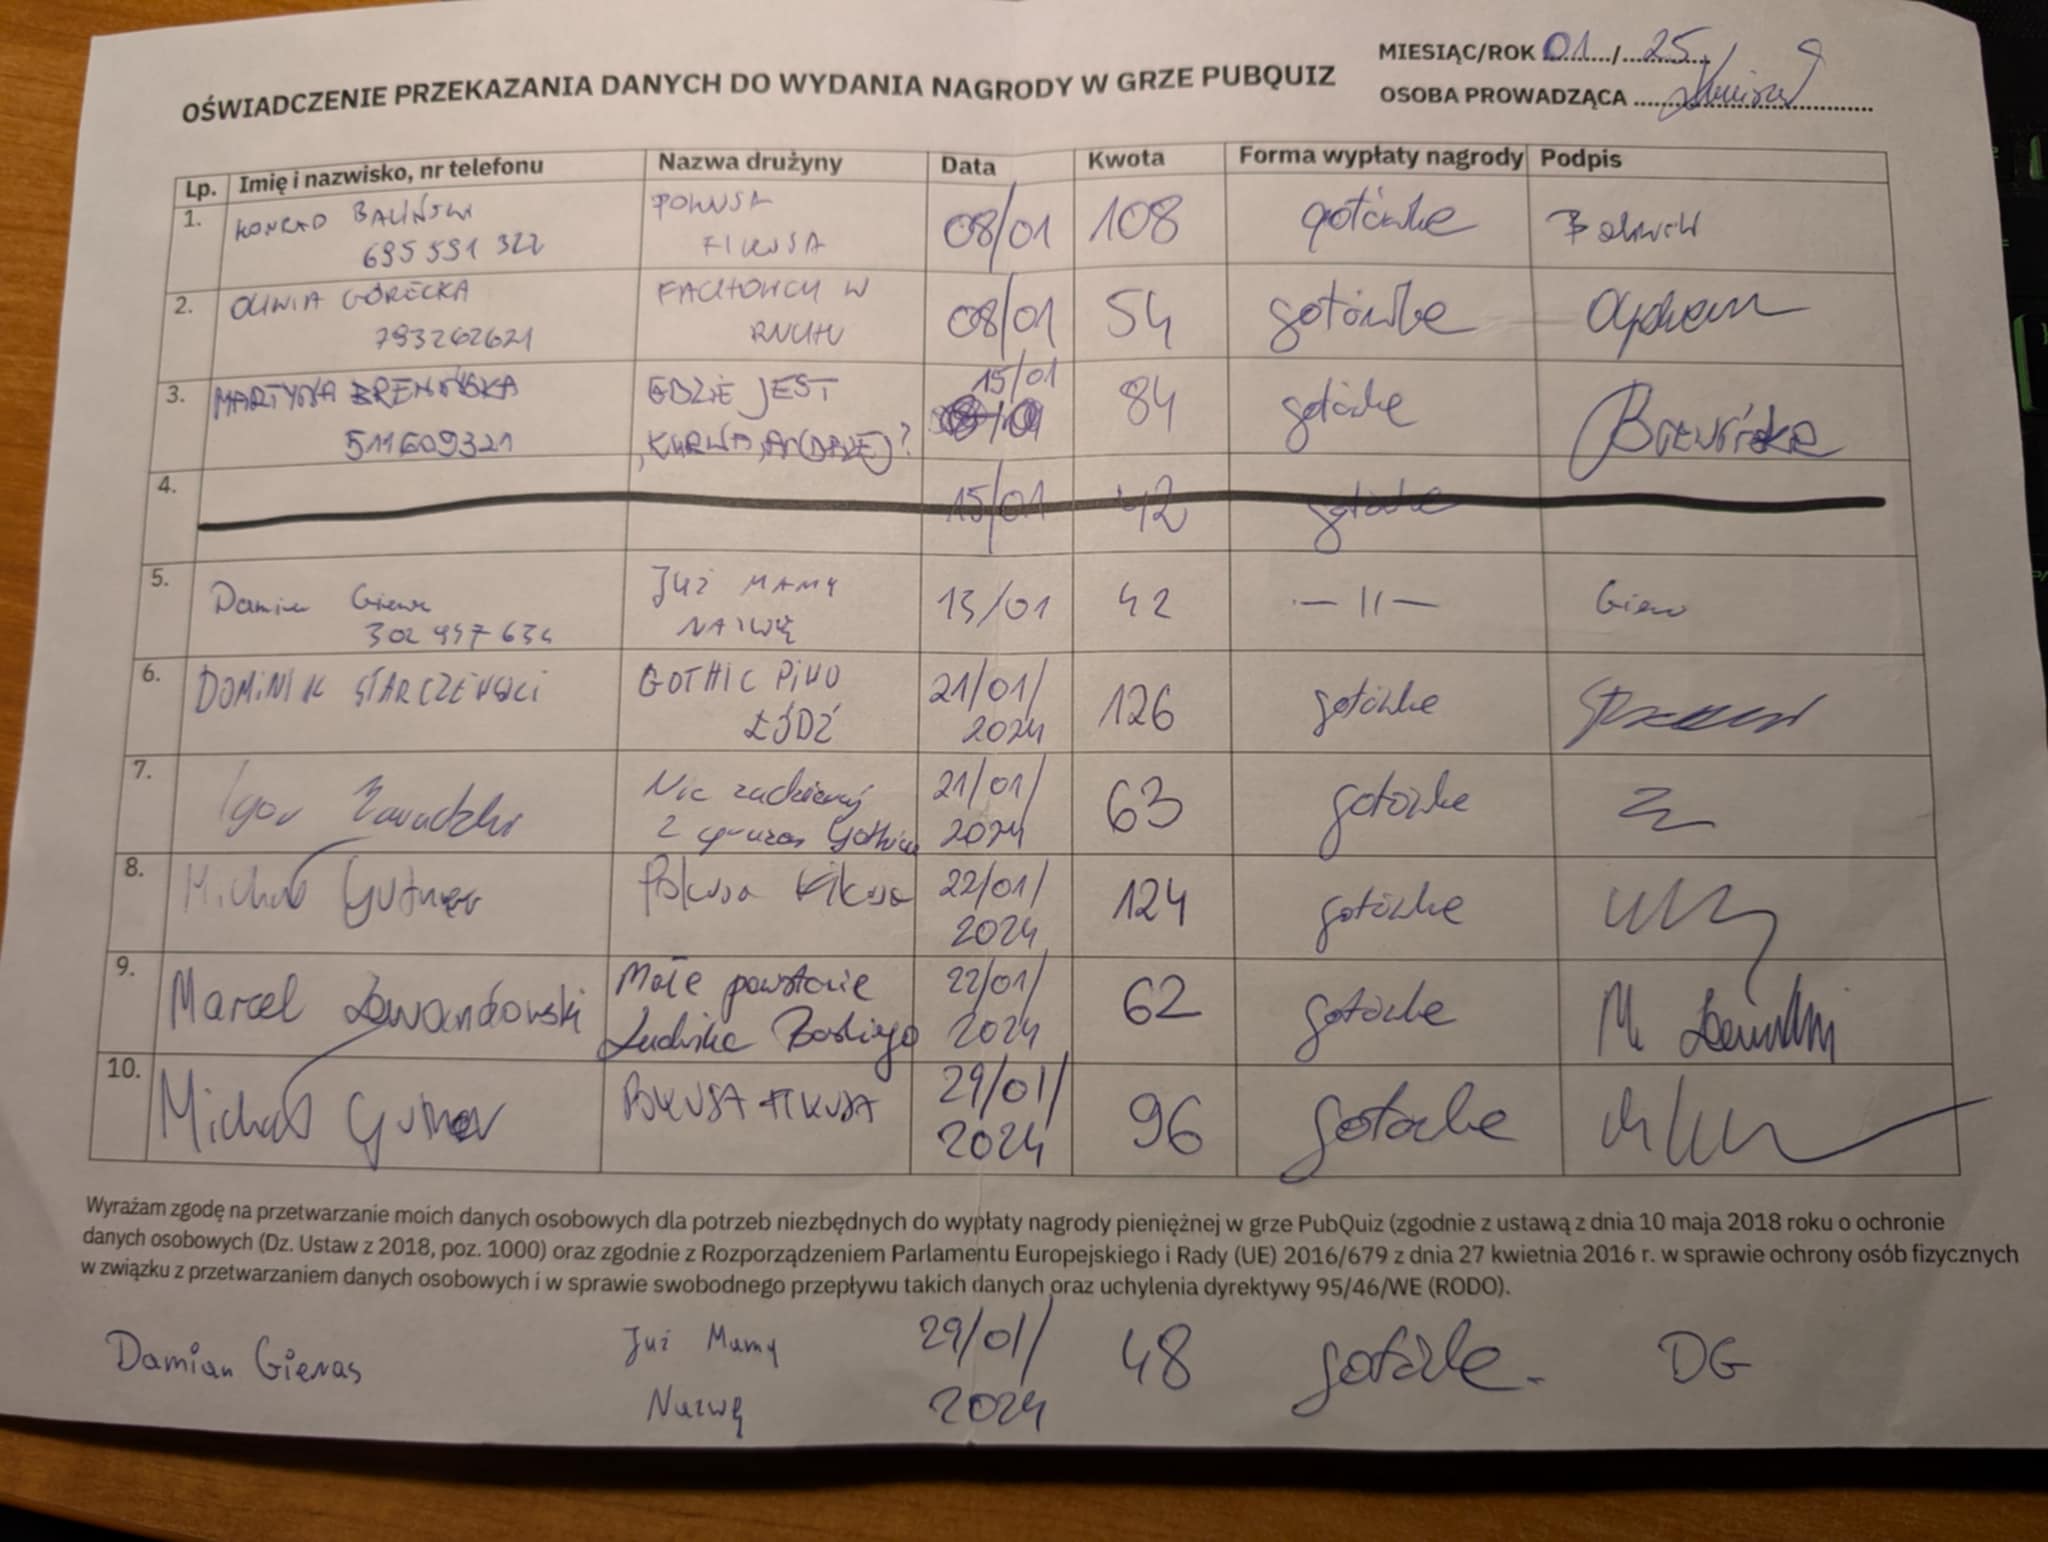 MIESIĄC/ROK 01/25
OŚWIADCZENIE PRZEKAZANIA DANYCH DO WYDANIA NAGRODY W GRZE PUBQUIZ
OSOBA PROWADZĄCA
Lp. Imię i nazwisko, nr telefonu Nazwa drużyny Data Kwota Forma wypłaty nagrody Podpis
1. KONRAD BALIŃSKI POKUSA 08/01 108 gotówka
695 591 322 FIKUSA
2. OLIWIA GÓRECKA FACHOWCY W 08/01 54 gotówka
793262621 RUCHU
3. MARTYNA BREWIŃSKA GDZIE JEST 15/01 84 gotówka Brewińska
511609321 , KURWA, ANDRZEJ?
4. 15/01 42 gotówka
5. Damian JUŻ MAMY 15/01 42 — 11 —
302 957 634 NAZWĘ
6. DOMINIK STARCZEWSKI GOTHIC PIWO 21/01/ 126 gotówka
ŁÓDŹ 2024
7. Igor Zawadzki Nic 21/01/ 63 gotówka
2024
8. Michał Gutner Pokusa Fikusa 22/01/ 124 gotówka
2024
9. Marcel Lewandowski Małe powstanie 22/01/ 62 gotówka
Ludwika 2024
10. Michał Gutner POKUSA FIKUSA 29/01/ 96 gotówka
2024
Wyrażam zgodę na przetwarzanie moich danych osobowych dla potrzeb niezbędnych do wypłaty nagrody pieniężnej w grze PubQuiz (zgodnie z ustawą z dnia 10 maja 2018 roku o ochronie
danych osobowych (Dz. Ustaw z 2018, poz. 1000) oraz zgodnie z Rozporządzeniem Parlamentu Europejskiego i Rady (UE) 2016/679 z dnia 27 kwietnia 2016 r. w sprawie ochrony osób fizycznych
w związku z przetwarzaniem danych osobowych i w sprawie swobodnego przepływu takich danych oraz uchylenia dyrektywy 95/46/WE (RODO).
Damian Gieras Już Mamy 29/01/ 48 gotówka. DG
Nazwę 2024